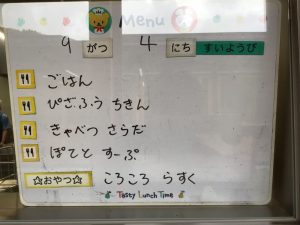 Menu
9 がつ 4 にち すいようび
ごはん
ぴざふう ちきん
きゃべつ さらだ
ぽてと すーぷ
☆おやつ☆ ころころ らすく
Tasty Lunch Time